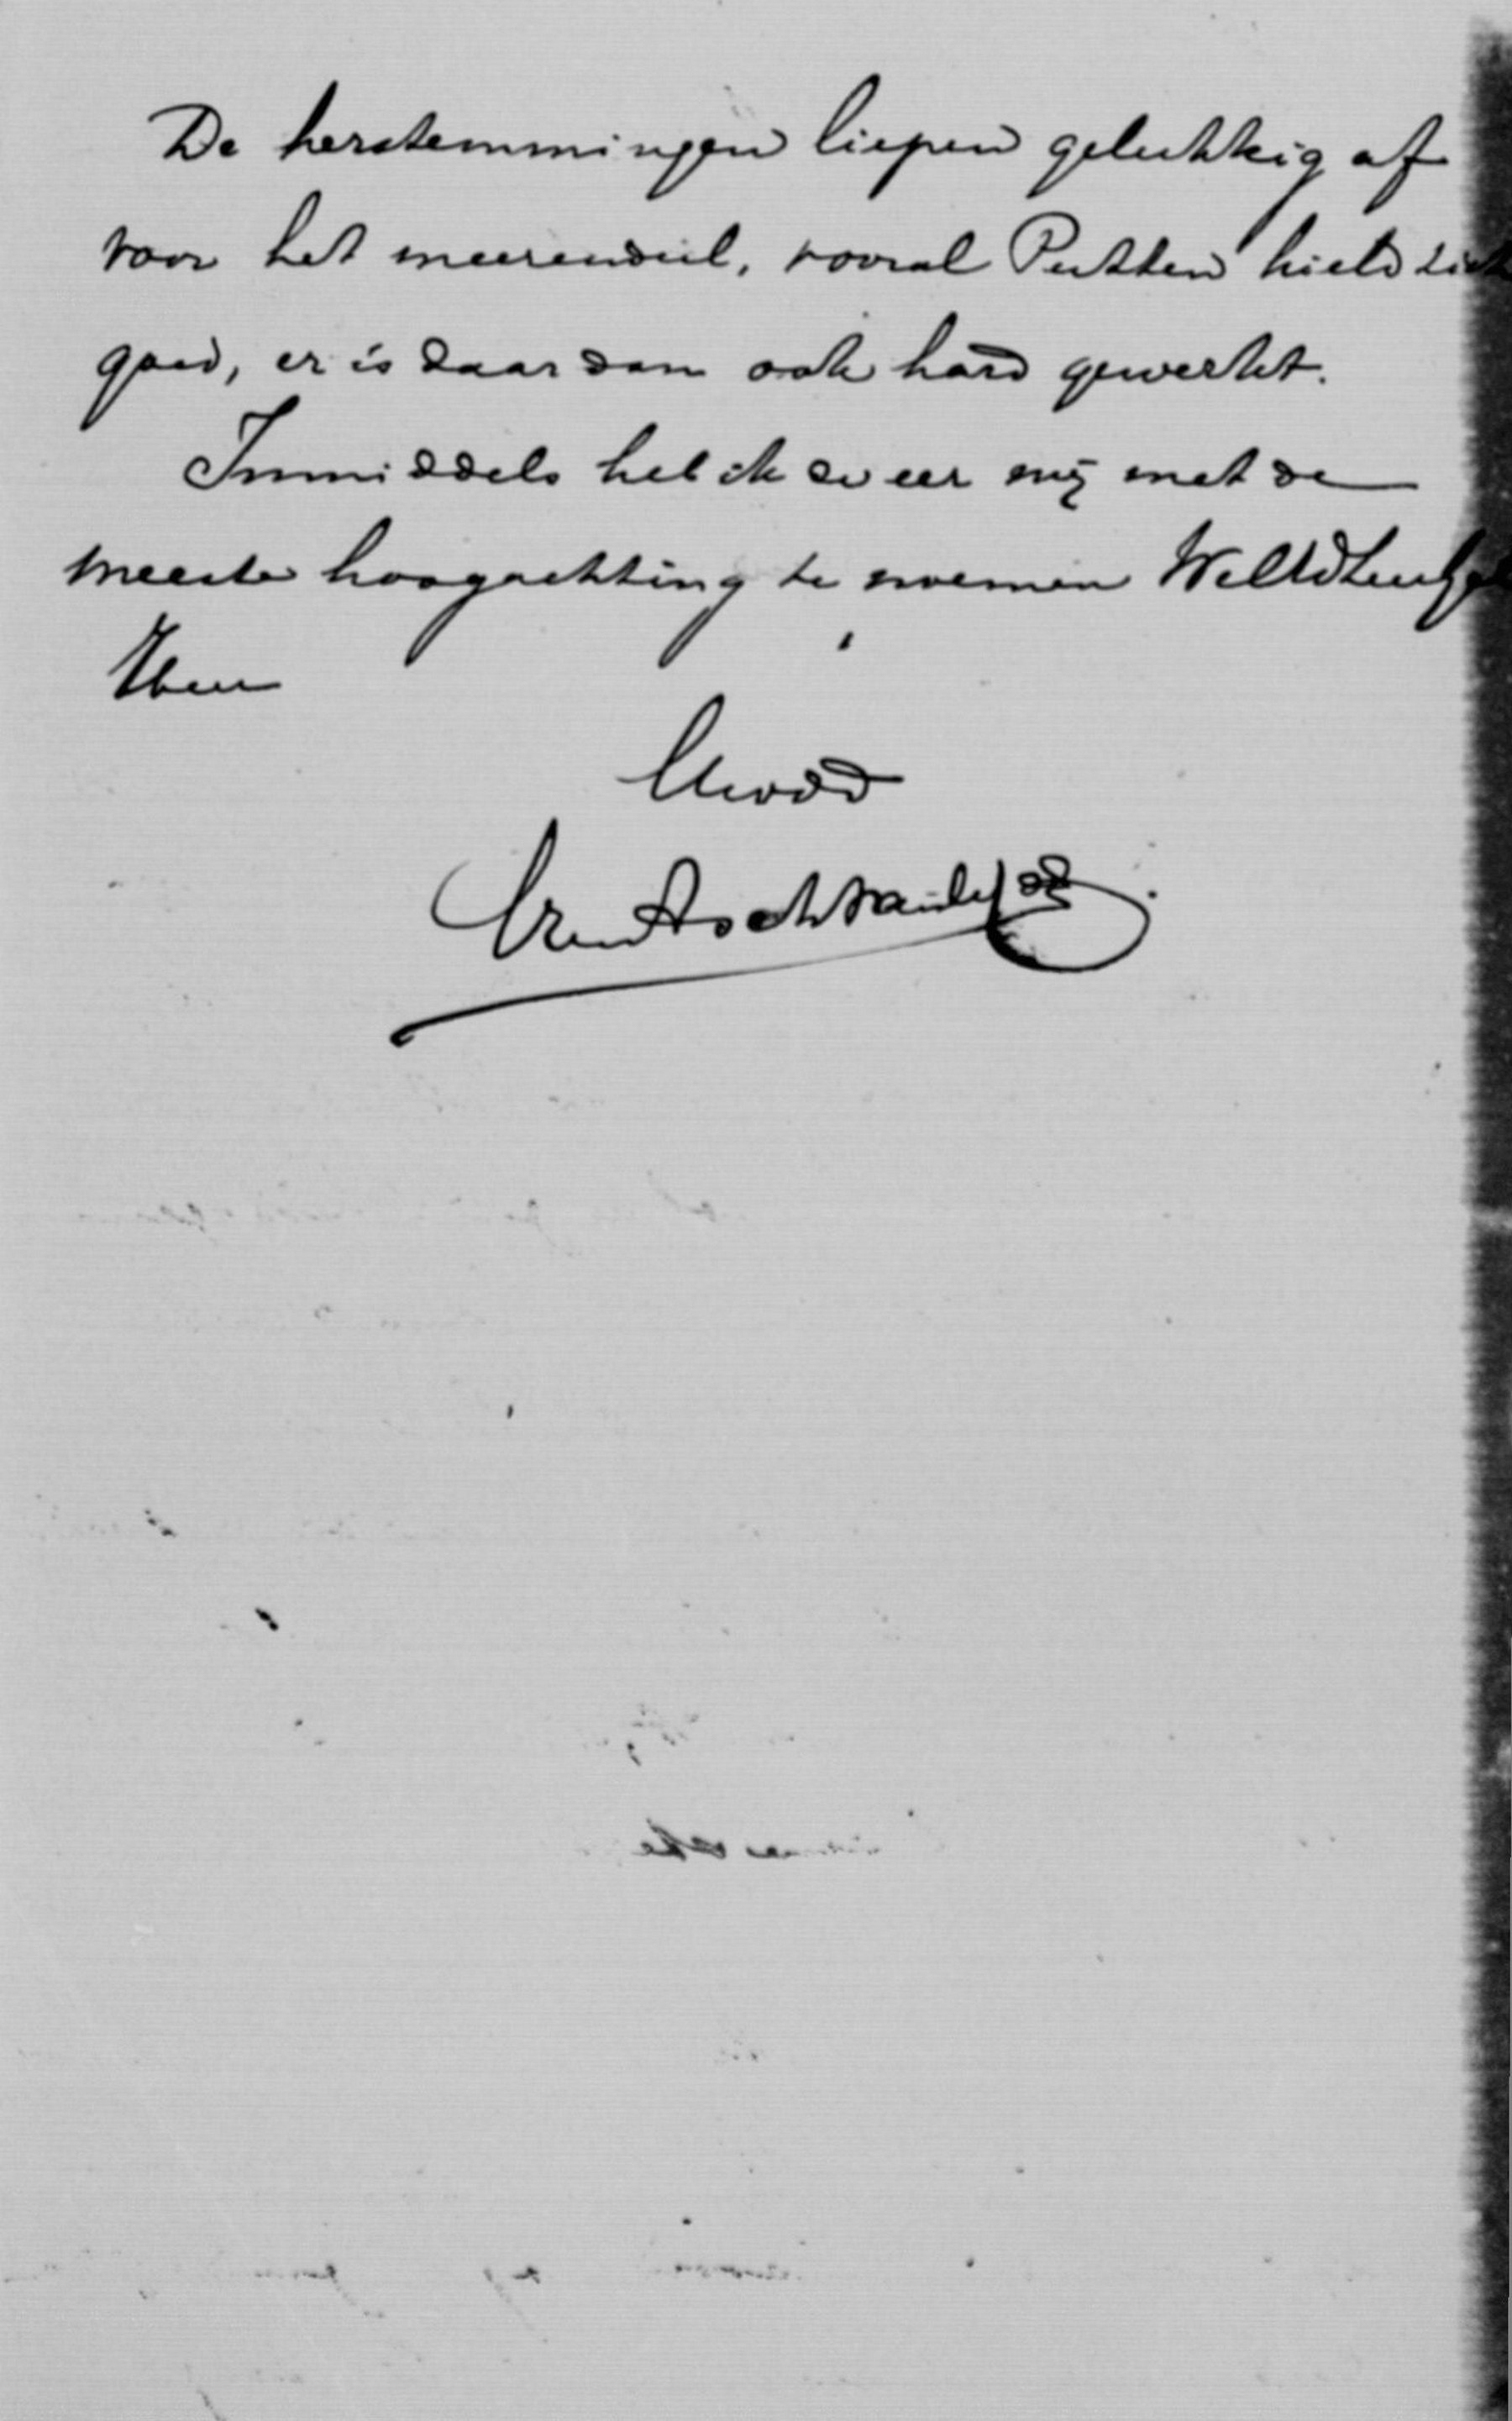 De herstemmingen liepen gelukkig af
voor het meerendeel, vooral Putten hield zich
goed, er is daar dan ook hard gewerkt.
Inmiddels heb ik de eer mij met de
meeste hoogachting te noemen
Heer
Uwdd